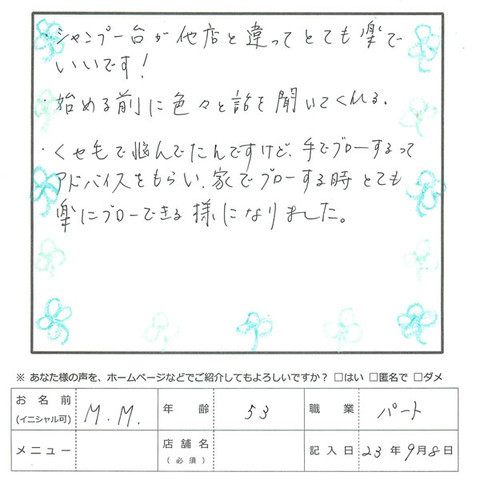 ・シャンプー台が他店と違ってとても楽で
いいです!
・始める前に色々と話を聞いてくれる。
・くせ毛で悩んでたんですけど、手でブローするって
アドバイスをもらい、家でブローする時とても
楽にブローできる様になりました。
※ あなた様の声を、ホームページなどでご紹介してもよろしいですか? □はい □匿名で □ダメ
お名前 (イニシャル可) M.M. 年齢 53 職業 パート
メニュー 店舗名 (必須) 記入日 23年9月8日